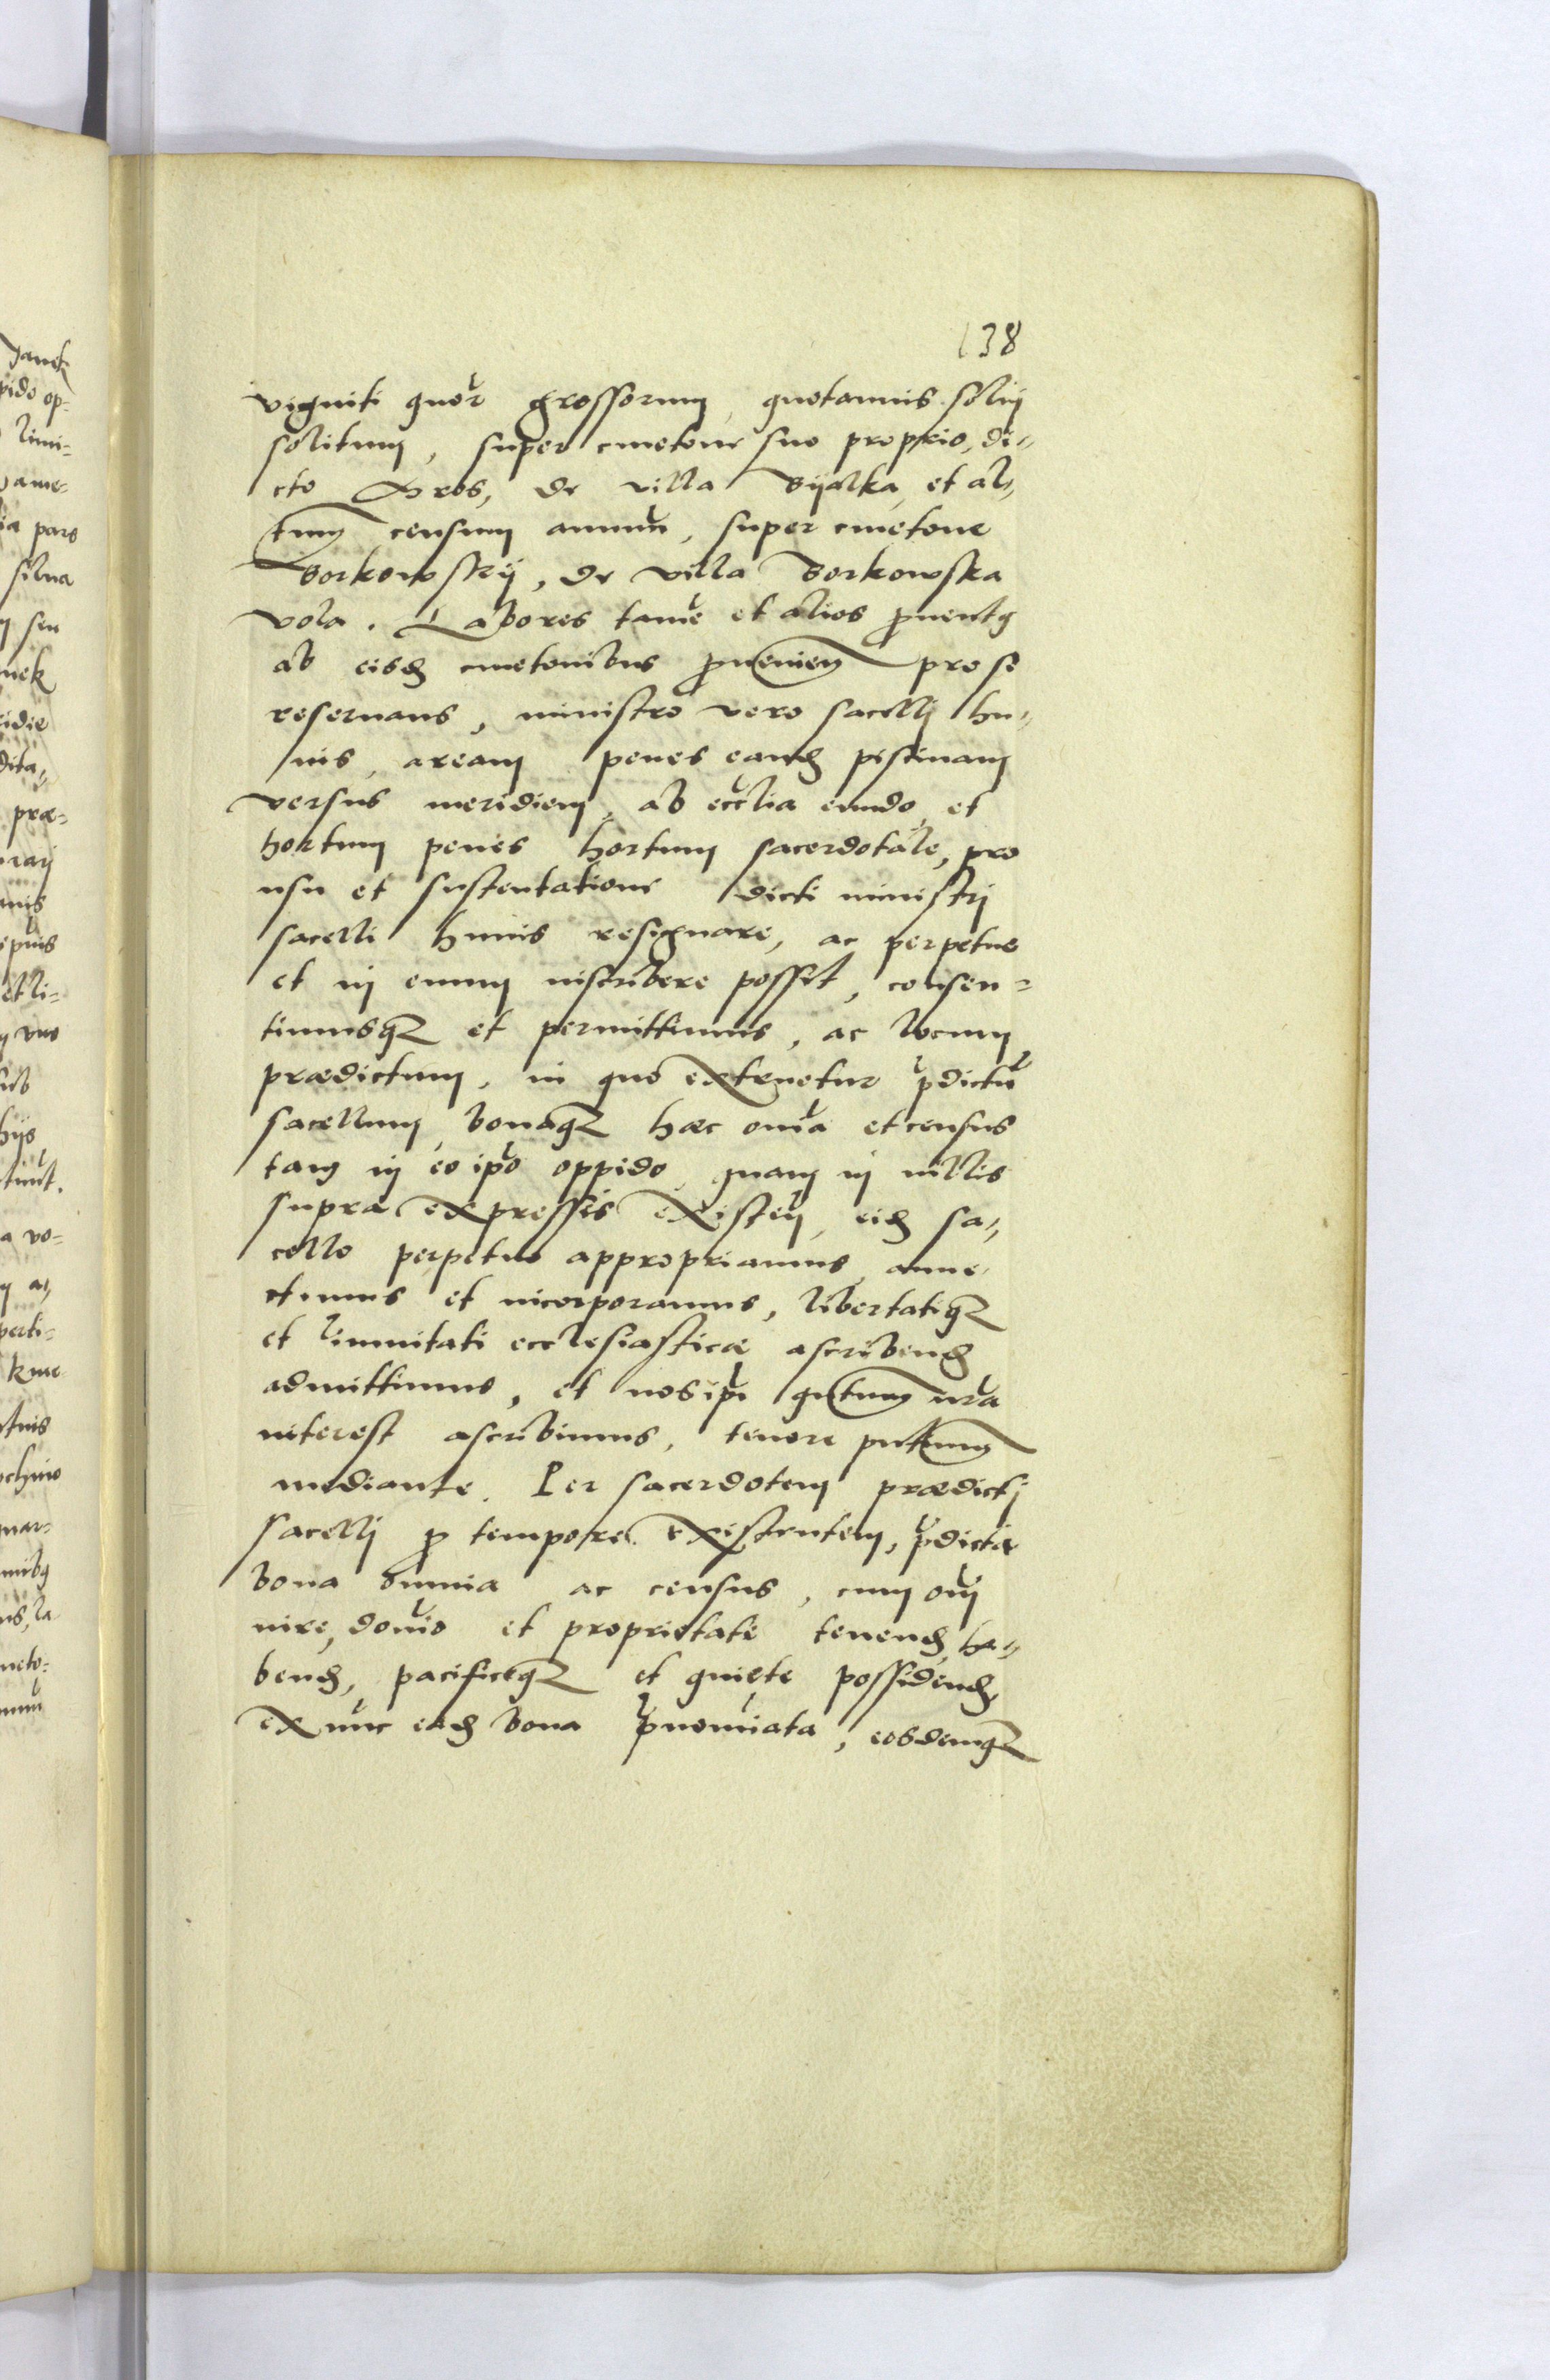 138
viginti quor grossorum, quotannis solui
solitum, super cmetone suo proprio, di-
cto Gros, de villa Byalka, et al-
tum censum annuu, super cmetone
Borkowskij, de villa Borkowska
vola. Labores tame et alios ꝓuentꝯ
ab eisd cmetonibus ꝓuenien pro se
reseruans, ministro vero sacelli hu-
ius, aream penes eand piscinam
versus meridiem, ab ecclia eundo, et
hortum penes hortum sacerdotale, pro
usu et sustentatione dicti ministri
sacelli huius resignare, ac perpetuo
et in euum inscribere possit, consen-
timusqꝫ et permittimus, ac locum
prædictum, in quo extruetur p̃dictu
sacellum, bonaqꝫ hæc omia et census
tam in eo ipo oppido, quam in villis
supra expressis existen, eid sa-
cello perpetuo appropriamus, anne-
ctimus et incorporamus, libertatiqꝫ
et immunitati ecclesiasticæ ascribend
admittimus, et nos ipi qntum nra
interest ascribimus, tenore pntium
mediante. Per sacerdotem prædicti
sacelli ꝓ tempore existentem, p̃dicta
bona omnia ac census, cum omi
iure, domio et proprietate tenend, ha-
bend, pacificeqꝫ et quiete possidend,
ex nunc ead bona p̃nomiata, eosdemqꝫ